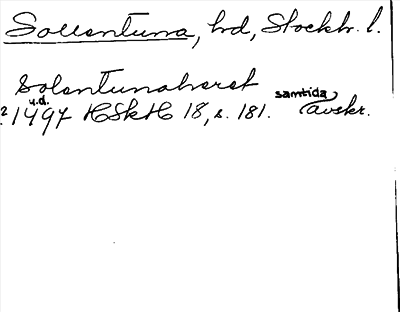 Sollentuna, hd, Stockh. l.
Solentunaheret
u.d. samtida
? 1497 HSkH 18, s. 181. avskr.